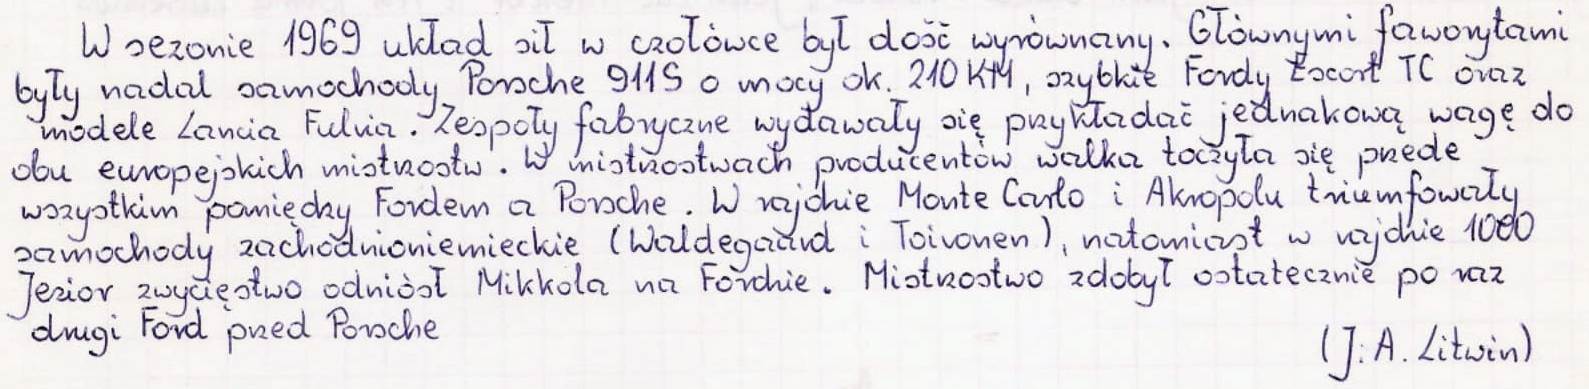 W sezonie 1969 układ sił w czołówce był dość wyrównany. Głównymi faworytami
były nadal samochody Porsche 911S o mocy ok. 210 KM, szybkie Fordy Escort TC oraz
modele Lancia Fulvia. Zespoły fabryczne wydawały się przykładać jednakową wagę do
obu europejskich mistrzostw. W mistrzostwach producentów walka toczyła się przede
wszystkim pomiędzy Fordem a Porsche. W rajdzie Monte Carlo i Akropolu triumfowały
samochody zachodnioniemieckie (Waldegaard i Toivonen), natomiast w rajdzie 1000
Jezior zwycięstwo odniósł Mikkola na Fordzie. Mistrzostwo zdobył ostatecznie po raz
drugi Ford przed Porsche
(J. A. Litwin)